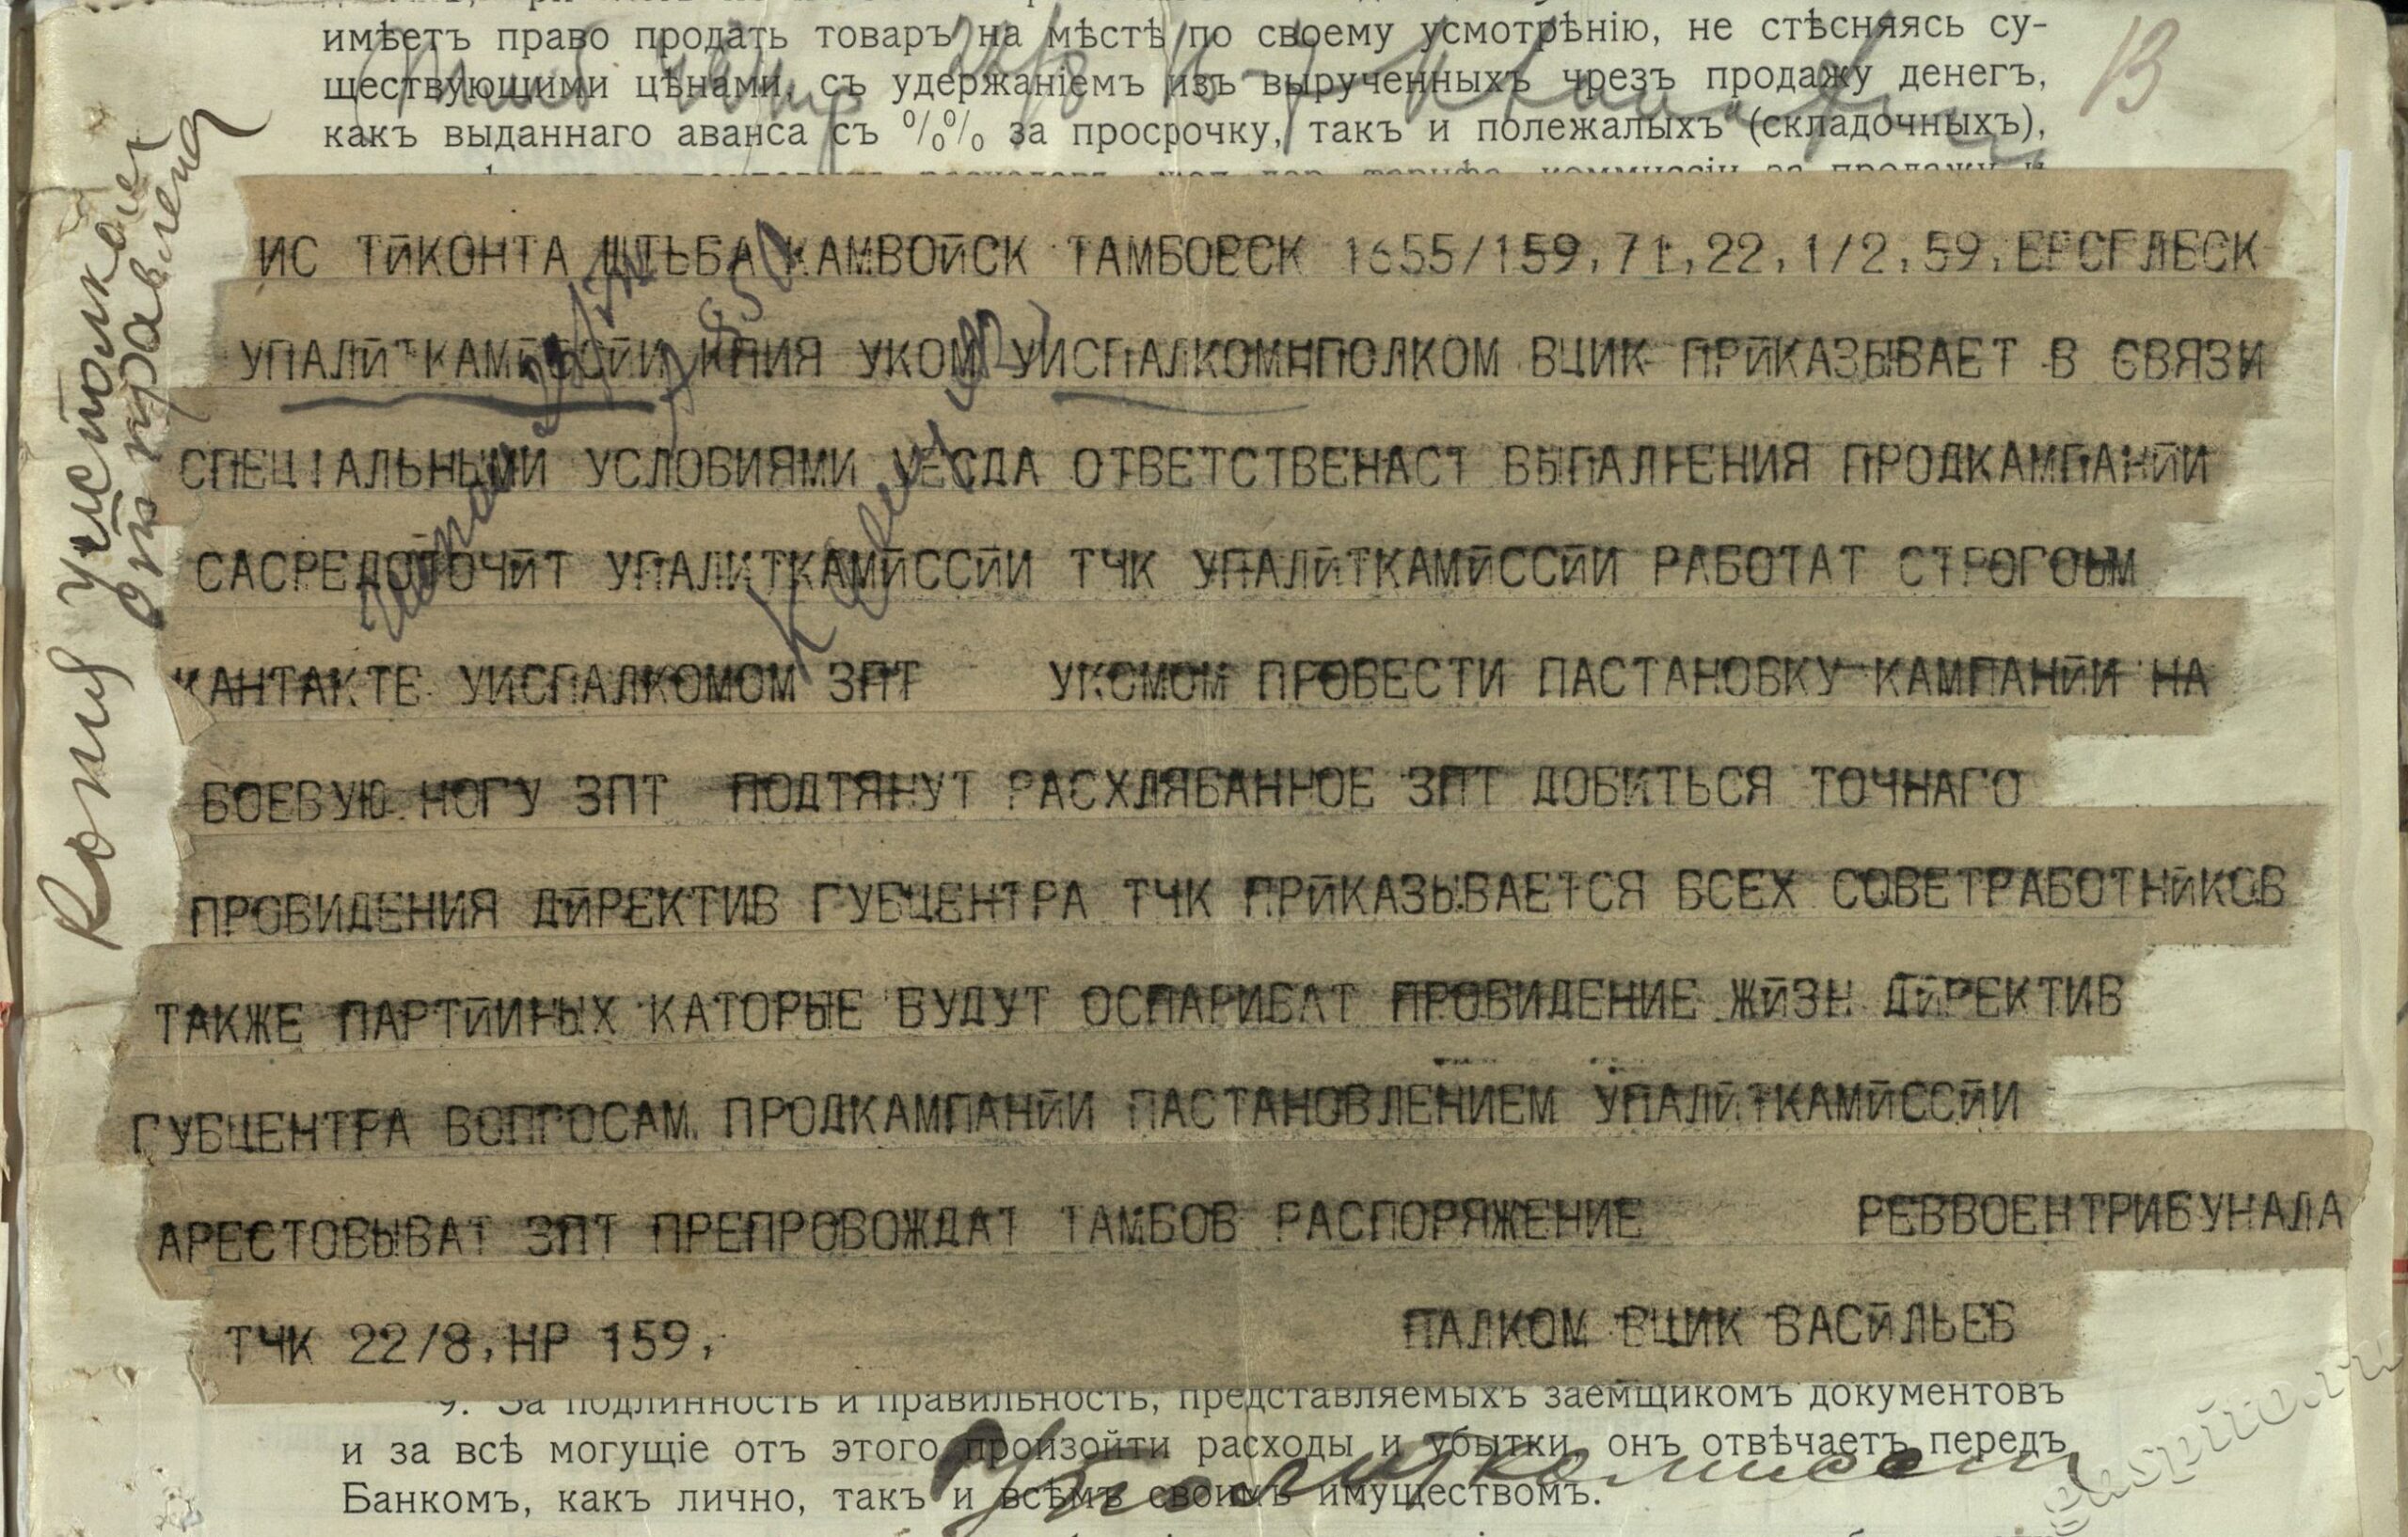 имѣетъ право продать товаръ на мѣстѣ по своему усмотрѣнію, не стѣсняясь су-
ществующими цѣнами, съ удержаніемъ изъ вырученныхъ чрезъ продажу денегъ,
какъ выданнаго аванса съ %% за просрочку, такъ и полежалыхъ (складочныхъ),
13
Копия уисполкому
отправлена
ИС ТЙКОНТА ШТЬБА КАМВОЙСК ТАМБОВСК 1655/159,71,22,1/2,59,
УПАЛЙТКАМЙССЙИ КПИЯ УКОМ УИСПАЛКОМНПОЛКОМ ВЦИК ПРЙКАЗЫВАЕТ В СВЯЗИ
СПЕЦІАЛЬНЫМИ УСЛОВИЯМИ УЕСДА ОТВЕТСТВЕНАСТ ВЫПАЛНЕНИЯ ПРОДКАМПАНЙИ
САСРЕДОТОЧЙТ УПАЛИТКАМЙССЙИ ТЧК УПАЛЙТКАМЙССЙИ РАБОТАТ СТРОГОЬМ
КАНТАКТЕ УИСПАЛКОМОМ ЗПТ УКОМОМ ПРОВЕСТИ ПАСТАНОВКУ КАМПАНЙИ НА
БОЕВУЮ НОГУ ЗПТ ПОДТЯНУТ РАСХЛЯБАННОЕ ЗПТ ДОБИТЬСЯ ТОЧНАГО
ПРОВИДЕНИЯ ДЙРЕКТИВ ГУБЦЕНТРА ТЧК ПРЙКАЗЫВАЕТСЯ ВСЕХ СОВЕТРАБОТНЙКОВ
ТАКЖЕ ПАРТЙИНЫХ КАТОРЫЕ БУДУТ ОСПАРИВАТ ПРОВИДЕНИЕ ЖЙЗН ДЙРЕКТИВ
ГУБЦЕНТРА ВОПРОСАМ ПРОДКАМПАНЙИ ПАСТАНОВЛЕНИЕМ УПАЛЙТКАМЙССЙИ
АРЕСТОВЫВАТ ЗПТ ПРЕПРОВОЖДАТ ТАМБОВ РАСПОРЯЖЕНИЕ РЕВВОЕНТРИБУНАЛА
ТЧК 22/8,НР 159, ПАЛКОМ ВЦИК ВАСЙЛЬЕВ
9. За подлинность и правильность, представляемыхъ заемщикомъ документовъ
и за всѣ могущіе отъ этого произойти расходы и убытки, онъ отвѣчаетъ передъ
Банкомъ, какъ лично, такъ и всѣмъ своимъ имуществомъ.
Уполиткомиссии
gaspito.ru